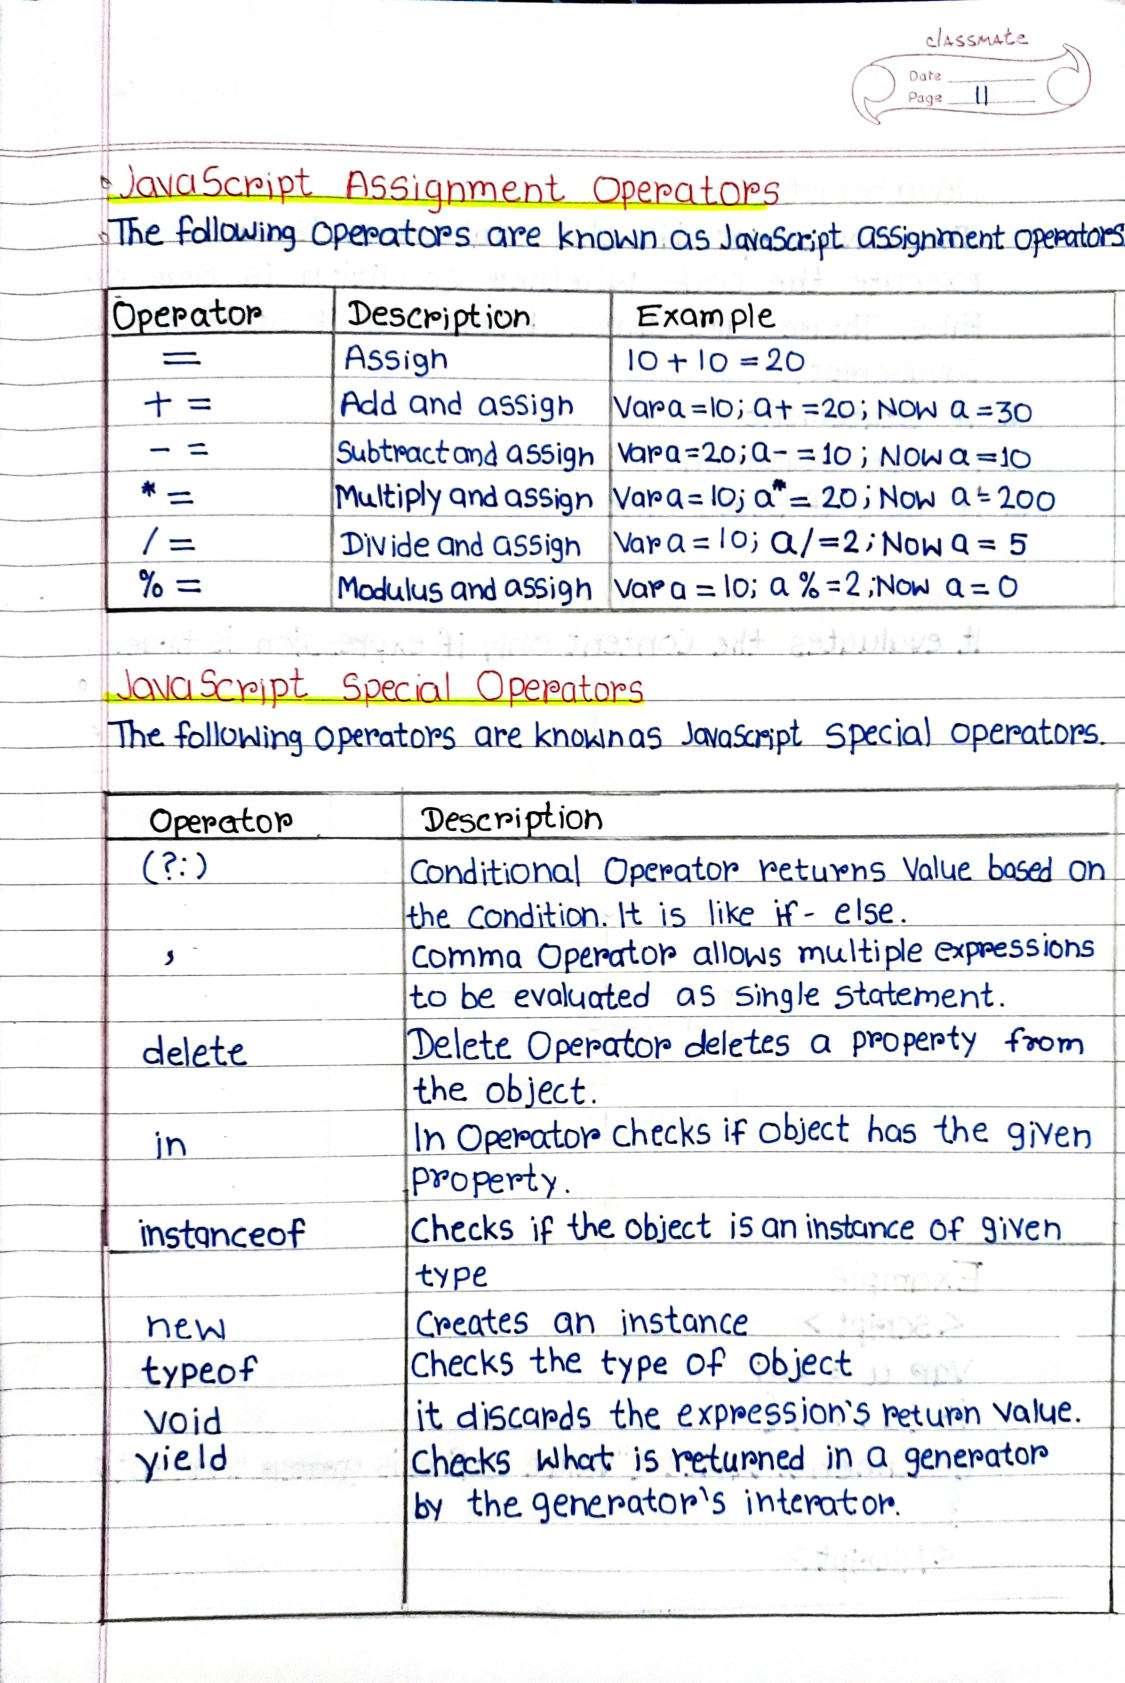 classmate
Date
Page 11
JavaScript Assignment Operators
The following operators are known as JavaScript assignment operators
Operator Description Example
= Assign 10 + 10 = 20
+ = Add and assign Var a = 10; a+ = 20; Now a = 30
- = Subtract and assign Var a = 20; a- = 10; Now a = 10
* = Multiply and assign Var a = 10; a* = 20; Now a = 200
/ = Divide and assign Var a = 10; a/=2; Now a = 5
% = Modulus and assign Var a = 10; a %=2; Now a = 0
JavaScript Special Operators
The following operators are known as JavaScript special operators.
Operator Description
(?:) Conditional Operator returns value based on
the condition. It is like if - else.
, Comma Operator allows multiple expressions
to be evaluated as single statement.
delete Delete Operator deletes a property from
the object.
in In Operator checks if object has the given
property.
instanceof Checks if the object is an instance of given
type
new Creates an instance
typeof Checks the type of object
void it discards the expression's return value.
yield Checks what is returned in a generator
by the generator's interator.